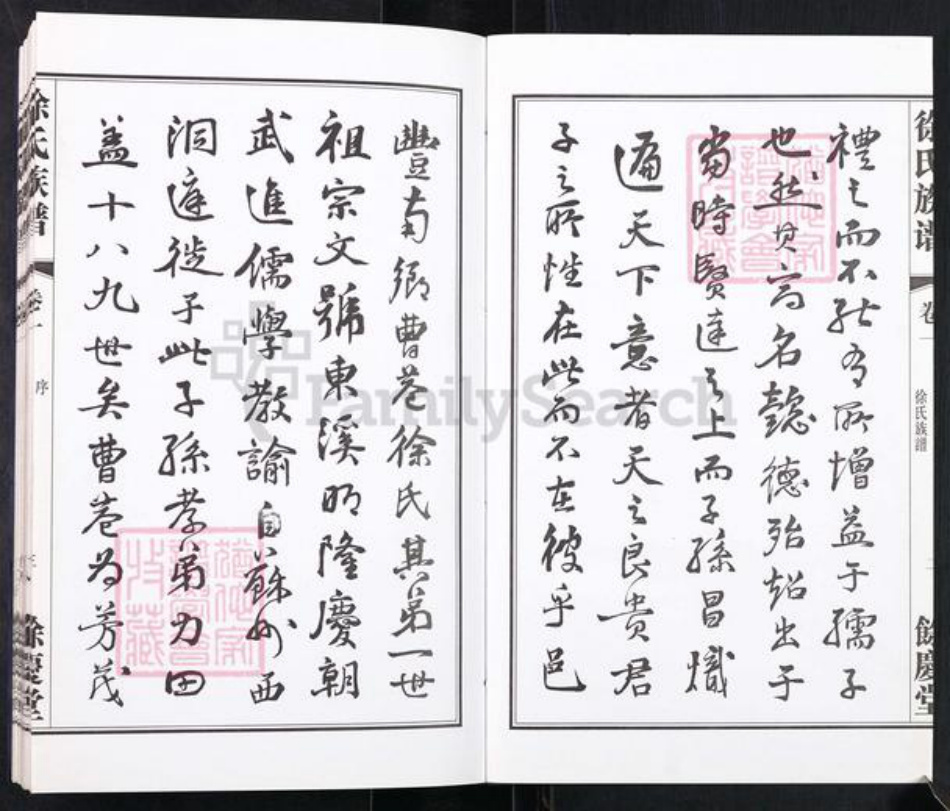 徐氏族譜
卷一
徐氏族譜
餘慶堂
禮之而不能有所增益于孺子
也然其高名懿德殆超出于
當時賢達之上而子孫昌熾
遍天下意者天之良貴君
子之所性在此而不在彼乎邑
豐南鄉曹巷徐氏其第一世
祖宗文號東溪明隆慶朝
武進儒學教諭自蘇州西
洞庭徙于此子孫孝弟力田
蓋十八九世矣曹巷為芳茂
徐氏族譜
卷一
序
三
餘慶堂
FamilySearch